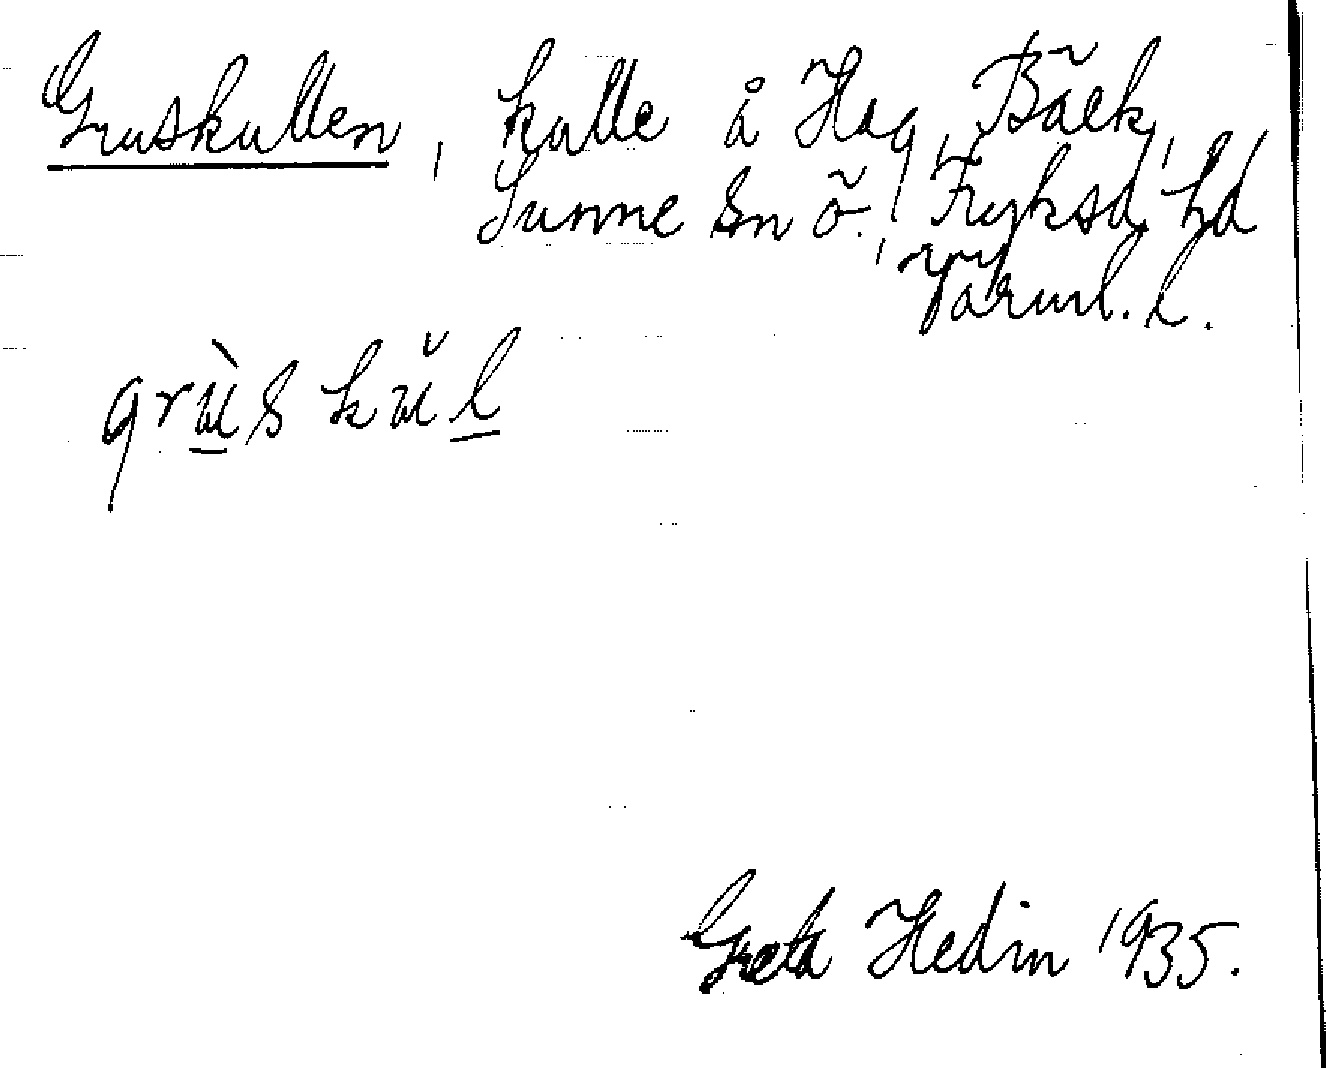 Gruskullen, kulle å Hag, Bäck,
Sunne sn ö., Fryksd. hd
Värml. l.
grùskŭl
Greta Hedin 1935.